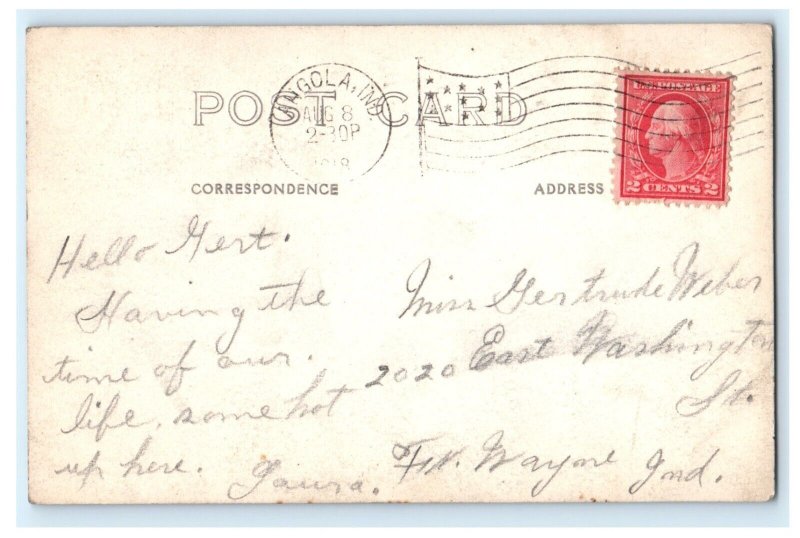 POST CARD
ANGOLA, IND
AUG 8
2-30P
1918
U.S. POSTAGE
2 CENTS 2
CORRESPONDENCE
ADDRESS
Hello Gert.
Having the
time of our
life, some hot
up here.
Laura.
Miss Gertrude Weber
2020 East Washington
St.
Ft. Wayne Ind.